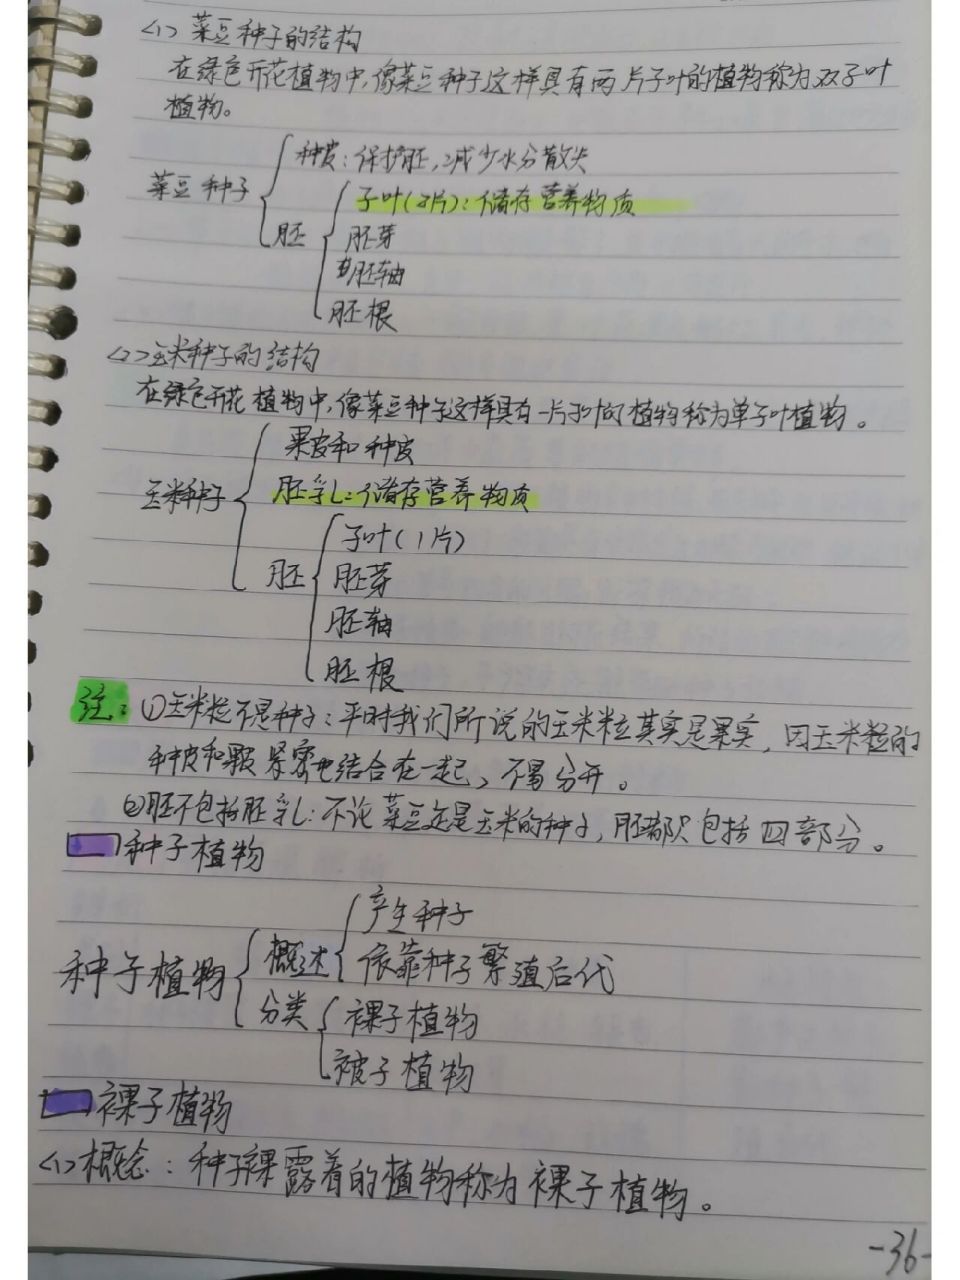 <1> 菜豆种子的结构
在绿色开花植物中,像菜豆种子这样具有两片子叶的植物称为双子叶
植物。
种皮:保护胚,减少水分散失
菜豆种子
子叶(2片):储存营养物质
胚
胚芽
胚轴
胚根
<2>玉米种子的结构
在绿色开花植物中,像菜豆种子这样具有一片子叶的植物称为单子叶植物。
果皮和种皮
玉米种子
胚乳:储存营养物质
子叶(1片)
胚
胚芽
胚轴
胚根
注:①玉米粒不是种子:平时我们所说的玉米粒其实是果实,因玉米粒的
种皮和果皮紧密地结合在一起,不易分开。
②胚不包括胚乳:不论菜豆还是玉米的种子,胚都只包括四部分。
种子植物
产生种子
种子植物 概述 依靠种子繁殖后代
分类 裸子植物
被子植物
裸子植物
<1>概念:种子裸露着的植物称为裸子植物。
-36-